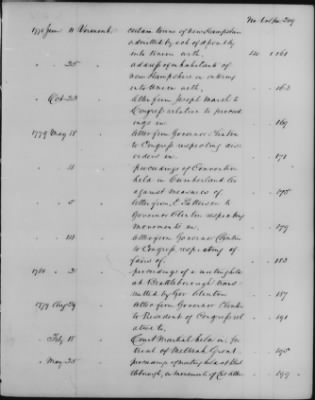 No Vol Pa
1778 June 11 Vermont, certain towns of New Hampshire
admitted by act of assembly
into union with, 40 1 161
" " 25 address of inhabitants of
New Hampshire on entering
into union with, " " 163
" Oct 23 letter from Joseph Marsh to
Congress relative to proceed
ings in. " " 169
1779 May 18 letter from Governor Clinton
to Congress respecting dis
orders in. " " 171
" " 11 proceedings of Convention
held in Cumberland Co
against measures of " " 175
" " 5 letter from E. Patterson to
Governor Clinton respecting
movements in. " " 179
" " letter from Governor Clinton
to Congress, respecting af
fairs of. " " 183
" 2 proceedings of a meeting held
at Brattleborough trans
mitted by Gov Clinton " " 187
1779 29 letter from Governor Clinton
to President of Congress rel
ative to. " " 191
" 18 Court Martial held in for
trial of Grant. " " 195
" May 25 proceedings of meeting held at
in movements of " " 199